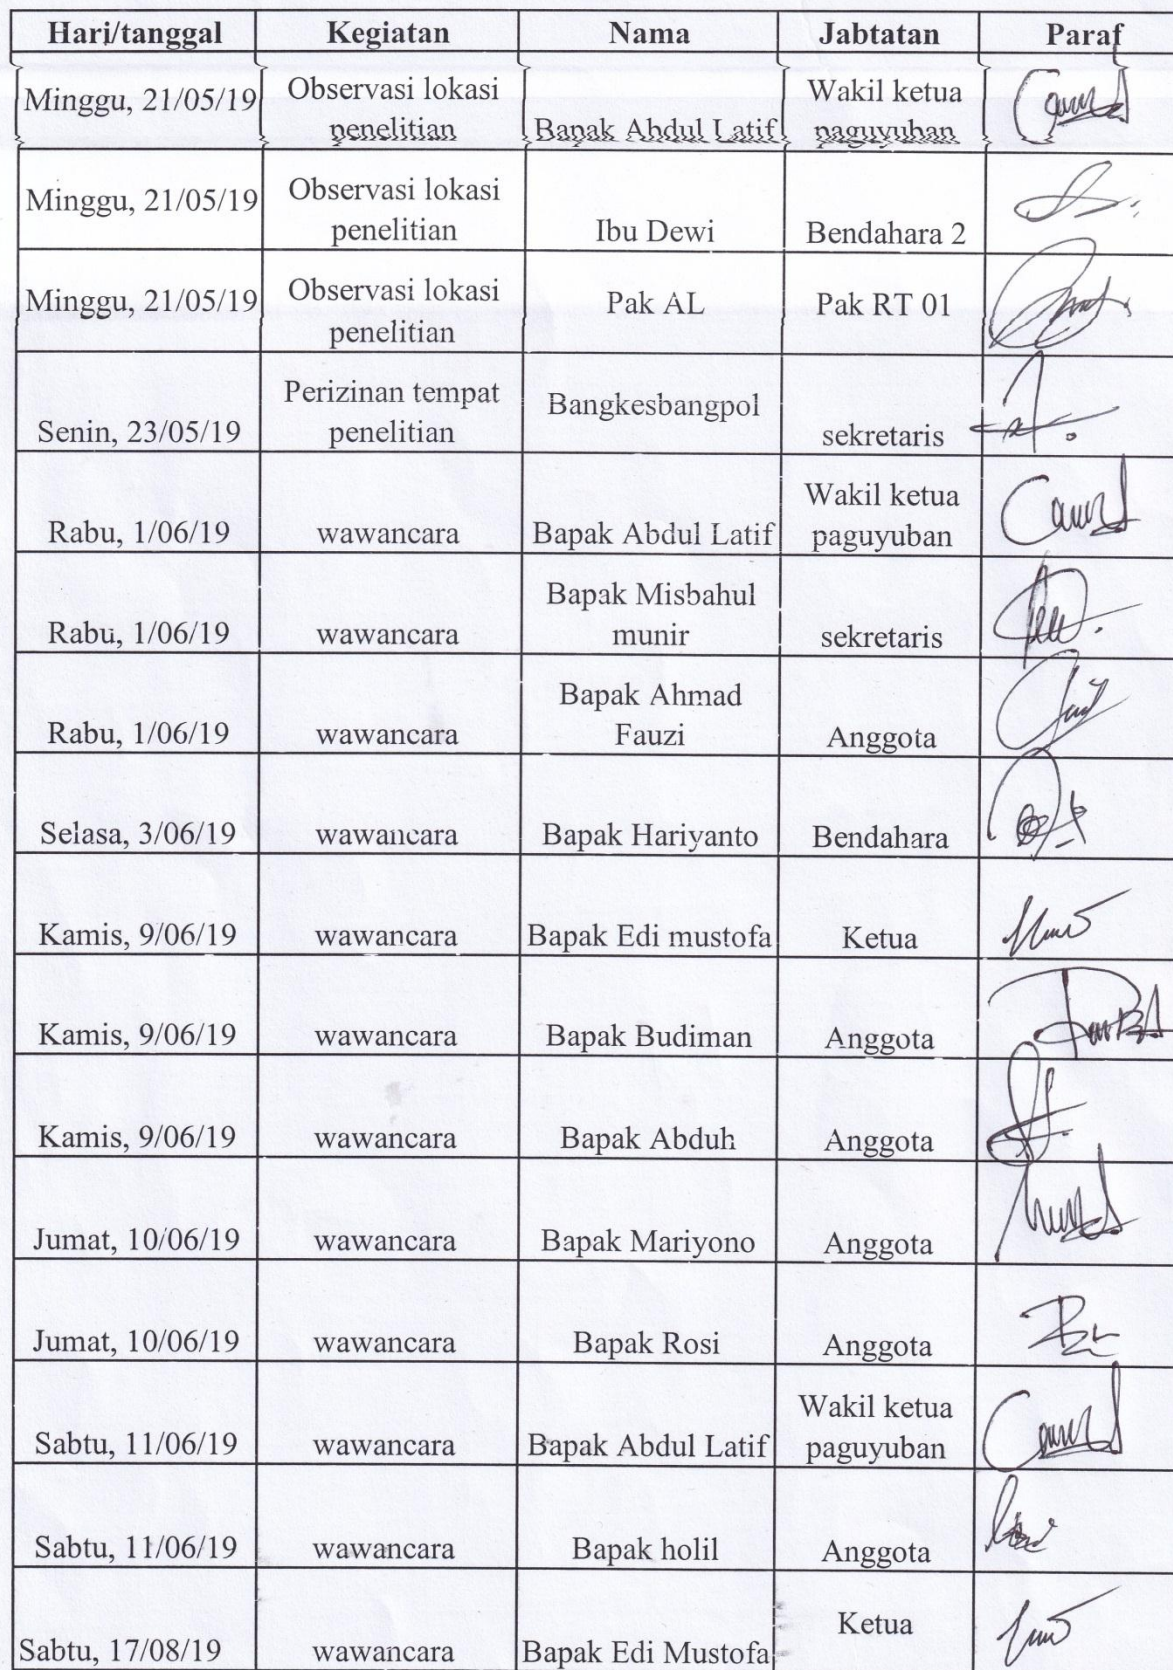 Hari/tanggal Kegiatan Nama Jabtatan Paraf
Minggu, 21/05/19 Observasi lokasi penelitian Bapak Abdul Latif Wakil ketua paguyuban
Minggu, 21/05/19 Observasi lokasi penelitian Ibu Dewi Bendahara 2
Minggu, 21/05/19 Observasi lokasi penelitian Pak AL Pak RT 01
Senin, 23/05/19 Perizinan tempat penelitian Bangkesbangpol sekretaris
Rabu, 1/06/19 wawancara Bapak Abdul Latif Wakil ketua paguyuban
Rabu, 1/06/19 wawancara Bapak Misbahul munir sekretaris
Rabu, 1/06/19 wawancara Bapak Ahmad Fauzi Anggota
Selasa, 3/06/19 wawancara Bapak Hariyanto Bendahara
Kamis, 9/06/19 wawancara Bapak Edi mustofa Ketua
Kamis, 9/06/19 wawancara Bapak Budiman Anggota
Kamis, 9/06/19 wawancara Bapak Abduh Anggota
Jumat, 10/06/19 wawancara Bapak Mariyono Anggota
Jumat, 10/06/19 wawancara Bapak Rosi Anggota
Sabtu, 11/06/19 wawancara Bapak Abdul Latif Wakil ketua paguyuban
Sabtu, 11/06/19 wawancara Bapak holil Anggota
Sabtu, 17/08/19 wawancara Bapak Edi Mustofa Ketua